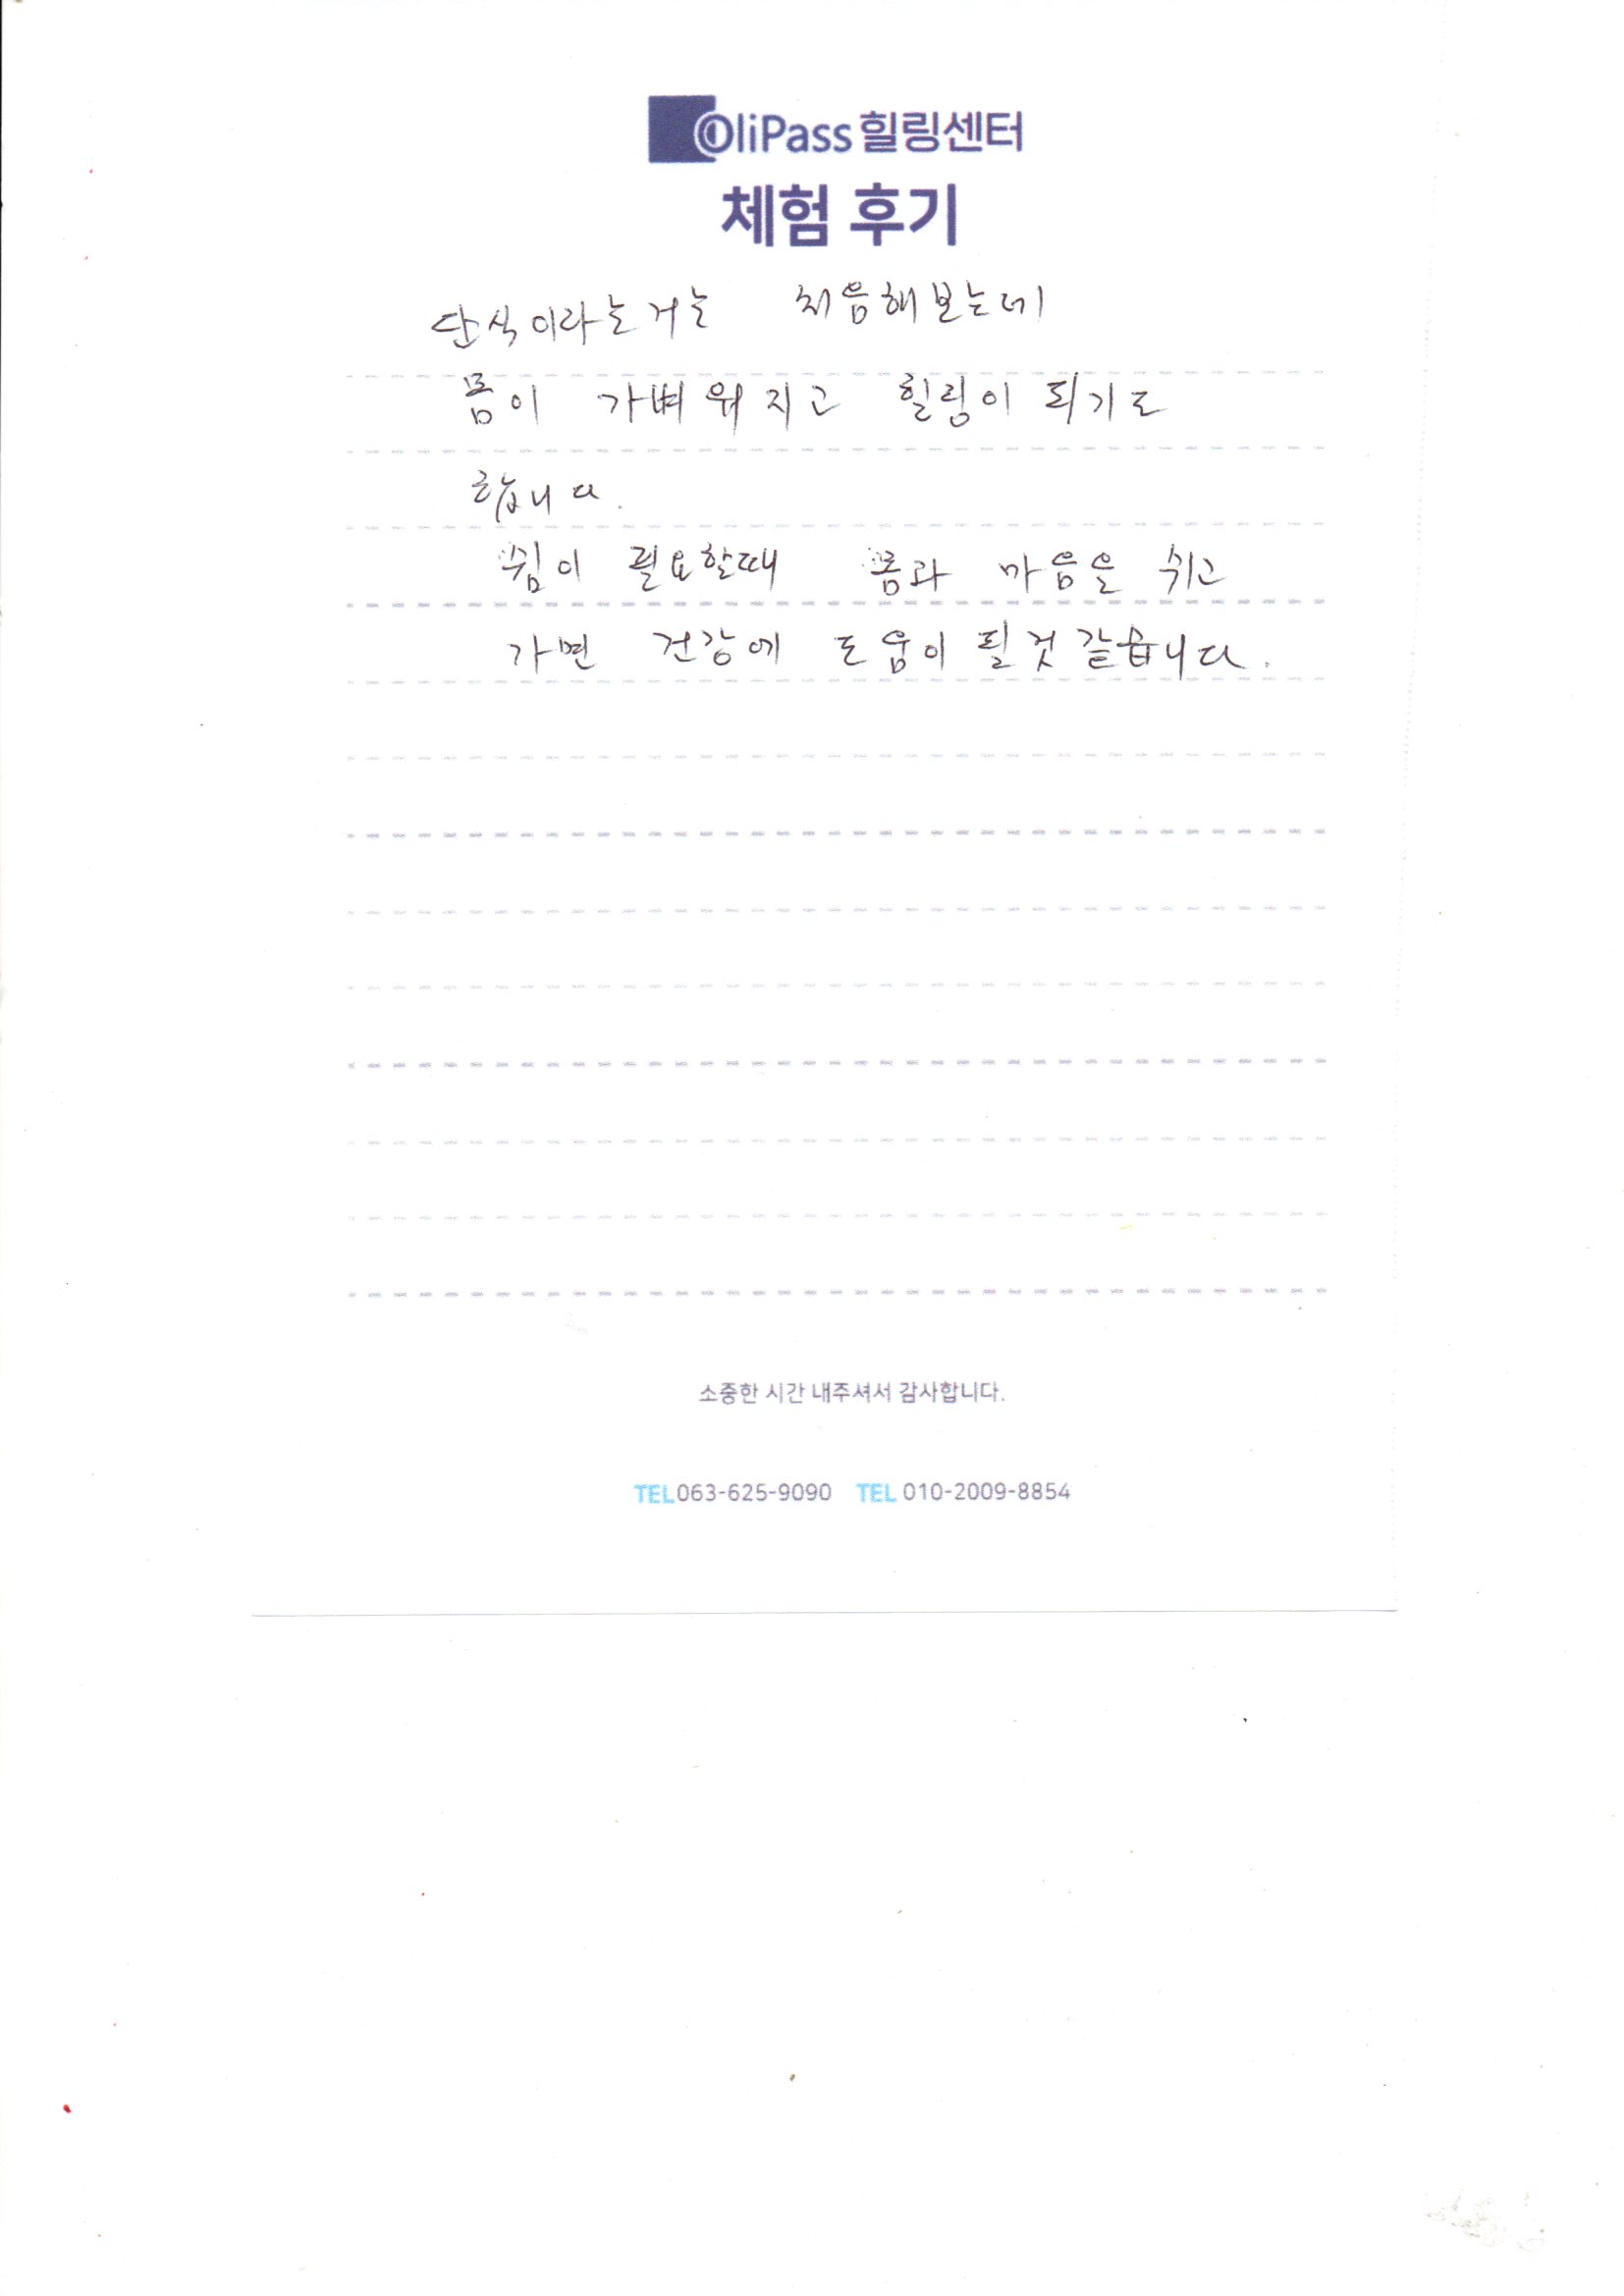 OliPass 힐링센터
체험 후기
단식이라는거는 처음해보는데
몸이 가벼워지고 힐링이 되기도
합니다.
쉼이 필요할때 몸과 마음을 쉬고
가면 건강에 도움이 될것 같습니다.
소중한 시간 내주셔서 감사합니다.
TEL 063-625-9090 TEL 010-2009-8854